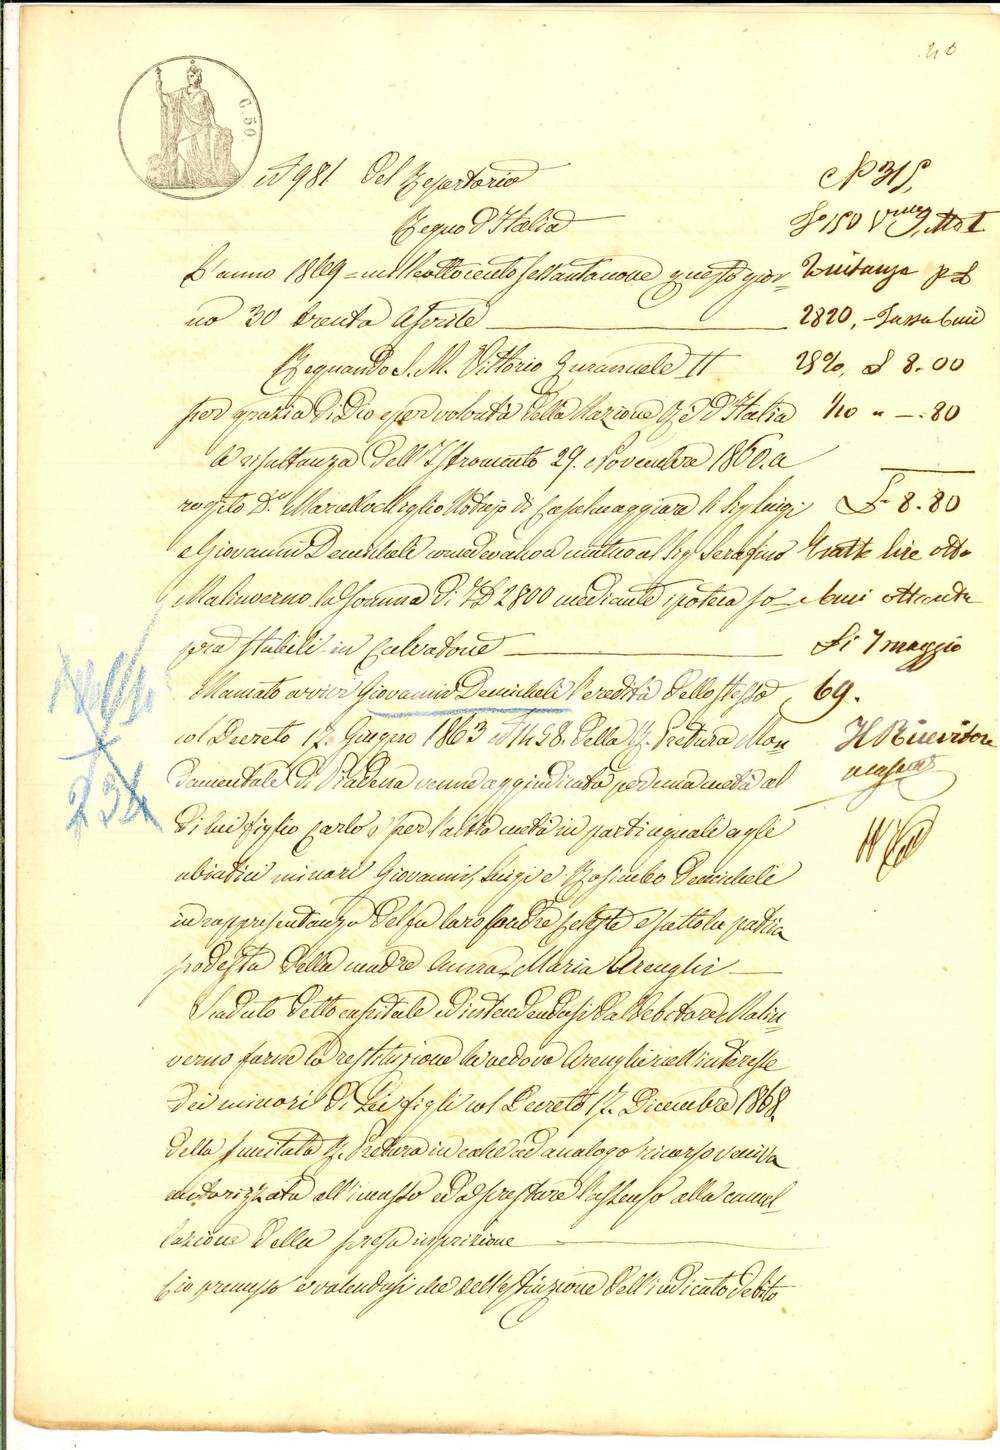 C. 50
N 981 del Repertorio
Regno d'Italia
L'anno 1869 = mille ottocento sessantanove questo gior=
no 30 trenta Aprile
Regnando S. M. Vittorio Emanuele II
per grazia di Dio e per volontà della Nazione Re d'Italia
A risultanza dell'Istromento 29. Novembre 1860. a
rogito Dr. Marcello Miglio Notajo di Casalmaggiore li Sig. Luigi
e Giovanni Denicheli concedevano a mutuo al Sig. Serafino
Malinverno la somma di 2800 mediante ipoteca so=
pra stabili in Calvatone
Mancato ai vivi Giovanni Denicheli l'eredità dello stesso
col Decreto 17. Giugno 1863 N 1458. della R. Pretura Man
damentale di Piadena venne aggiudicata per una metà al
di lui figlio Carlo e per l'altra metà in parti uguali agli
abiatici minori Giovanni, Luigi e Rosimbo Denicheli
in rappresentanza del fu loro padre Celeste e sotto la patria
podestà della madre Anna Maria Arenghi
Scaduto detto capitale ed intendendosi dal debitore Malin=
verno farne la restituzione la vedova Arenghi nell'interesse
dei minori di Lei figli col Decreto 17. Dicembre 1868.
della suscitata R. Pretura in calce ad analogo ricorso veniva
autorizzata all'incasso ed a prestare l'assenso alla cancel=
lazione della presa inscrizione
Ciò premesso e volendosi che dell'estinzione dell'indicato debito
N 315,
150 Mod I
Quitanza p L
2820, - Tassa
28%, L 8. 00
1/10 " - . 80
L 8. 80
Esatte lire otto
Cent ottanta
Li 7 maggio
69.
Il Ricevitore
234